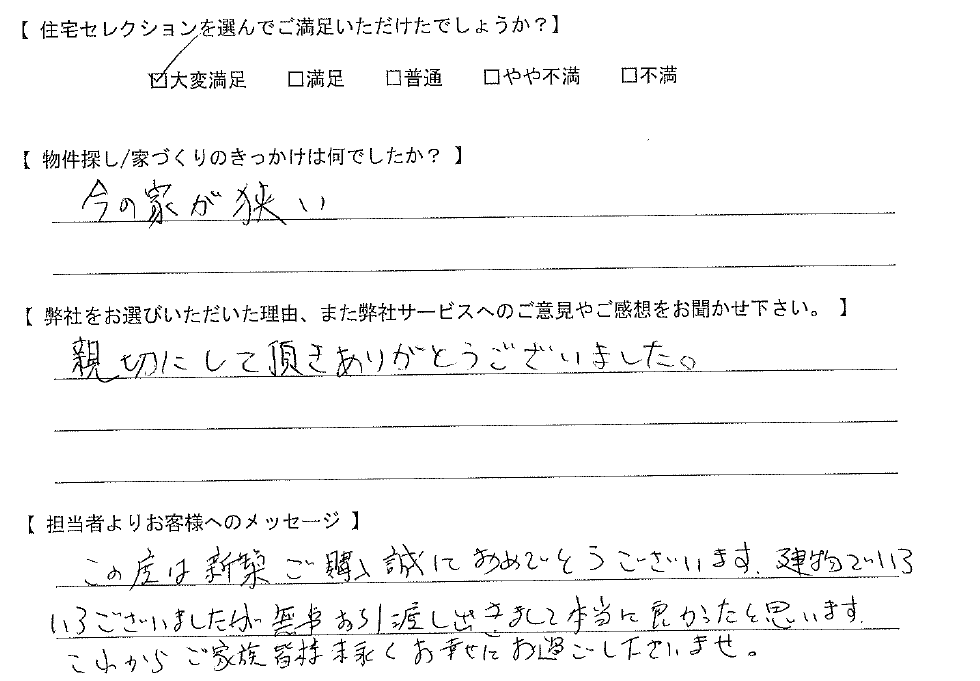 【 住宅セレクションを選んでご満足いただけたでしょうか？】
☑大変満足 □満足 □普通 □やや不満 □不満
【 物件探し/家づくりのきっかけは何でしたか？ 】
今の家が狭い
【 弊社をお選びいただいた理由、また弊社サービスへのご意見やご感想をお聞かせ下さい。 】
親切にして頂きありがとうございました。
【 担当者よりお客様へのメッセージ 】
この度は新築ご購入誠におめでとうございます。建物でいろ
いろございましたが無事お引渡し出きまして本当に良かったと思います。
これからご家族皆様末永くお幸せにお過ごし下さいませ。